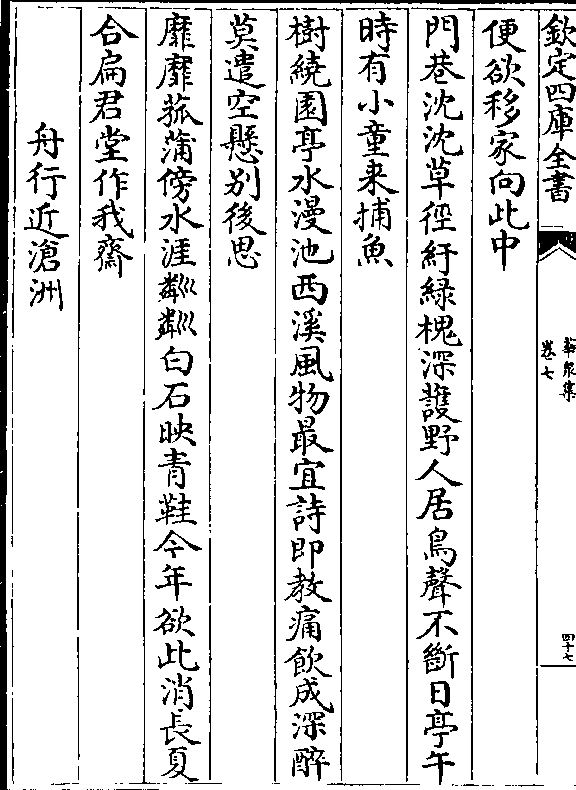 欽定四庫全書
華泉集
卷七
四十七
便欲移家向此中
門巷沈沈草徑紆綠槐深護野人居鳥聲不斷日亭午
時有小童来捕魚
樹繞園亭水漫池西溪風物最宜詩即教痛飲成深醉
莫遣空懸别後思
靡靡菰蒲傍水涯粼粼白石映青鞋今年欲此消長夏
合扁君堂作我齋
舟行近滄洲